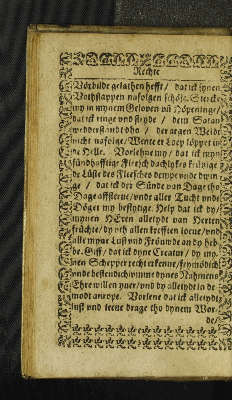 Rechte
Vörbilde gelathen hefft / dat ick synen
Vothstappen nafolgen schöle. Stercke
my in mynem Geloven vñ Höpeninge/
dat ick ringe vnd stryde / dem Satan
wedderstandt dho / der argen Welde
nicht nafolge/ Wente er Loep löppet in
de Helle. Vorlehne my / dat ick myn
sündhafftige Flesch dachlykes krützige
de Lüste des Flesches dempe vnde dwin-
ge / dat ick der Sünde van Dage tho
Dage affsterue/ vnde aller Tucht vnde
Döget my beflytige. Help dat ick dy/
mynen HEren alletydt van Herten
früchte/ dy vth allen krefften loeue/ vnd
alle myne Lust vnd Fröuwde an dy heb-
be. Giff/ dat ick dyne Creatur/ dy my-
nen Schepper recht erkenne/ frymödich
vnde bestendich vmme dynes Nahmens
Ehre willen yuer/ vnd dy alletydt in de
nodt anrope. Vorlene dat ick alletydt
lust vnd leeue drage tho dynem Wor-
de/